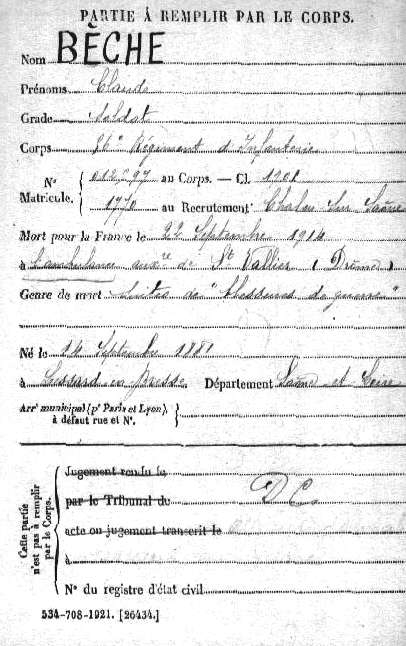 PARTIE À REMPLIR PAR LE CORPS.
Nom BÈCHE
Prénoms Claude
Grade Soldat
Corps 56e Régiment d'Infanterie
Nº Matricule. 01297 au Corps. — Cl. 1901
1770 au Recrutement Chalon sur Saône
Mort pour la France le 22 Septembre 1914
à l'ambulance auxre de St Vallier (Drôme)
Genre de mort Suites de "blessures de guerre"
Né le 14 Septembre 1881
à Lessard en Bresse Département Saône et Loire
Arrt municipal (pr Paris et Lyon),
à défaut rue et Nº.
Cette partie
n'est pas à remplir
par le Corps.
Jugement rendu le
par le Tribunal de D C
acte ou jugement transcrit le
à
Nº du registre d'état civil
534-708-1921. [26434.]